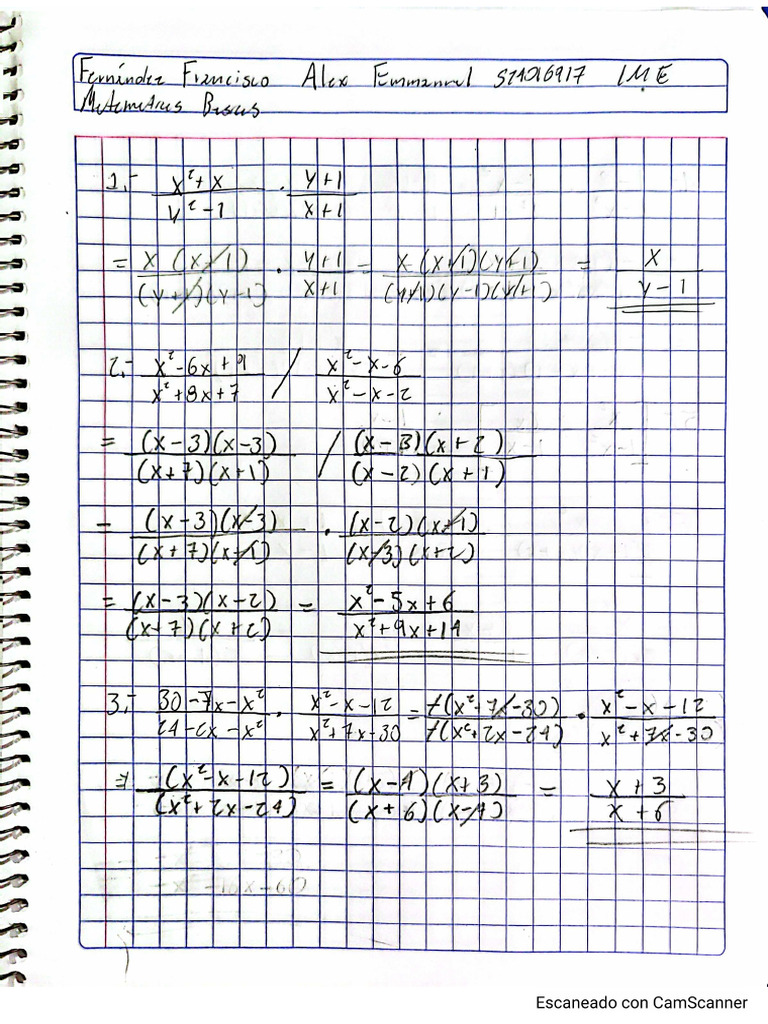 Fernández Francisco Alex Emmanuel S21016917 IME
Matemáticas Básicas
1.- (x²+x)/(y²-1) · (y+1)/(x+1)
= x(x+1)/((y+1)(y-1)) · (y+1)/(x+1) = x(x+1)(y+1)/((y+1)(y-1)(x+1)) = x/(y-1)
2.- (x²-6x+9)/(x²+8x+7) / (x²-x-6)/(x²-x-2)
= (x-3)(x-3)/((x+7)(x+1)) / (x-3)(x+2)/((x-2)(x+1))
= (x-3)(x-3)/((x+7)(x+1)) · (x-2)(x+1)/((x-3)(x+2))
= (x-3)(x-2)/((x+7)(x+2)) = (x²-5x+6)/(x²+9x+14)
3.- (30-7x-x²)/(24-2x-x²) · (x²-x-12)/(x²+7x-30) = -(x²+7x-30)/-(x²+2x-24) · (x²-x-12)/(x²+7x-30)
= (x²-x-12)/(x²+2x-24) = (x-4)(x+3)/((x+6)(x-4)) = (x+3)/(x+6)
Escaneado con CamScanner